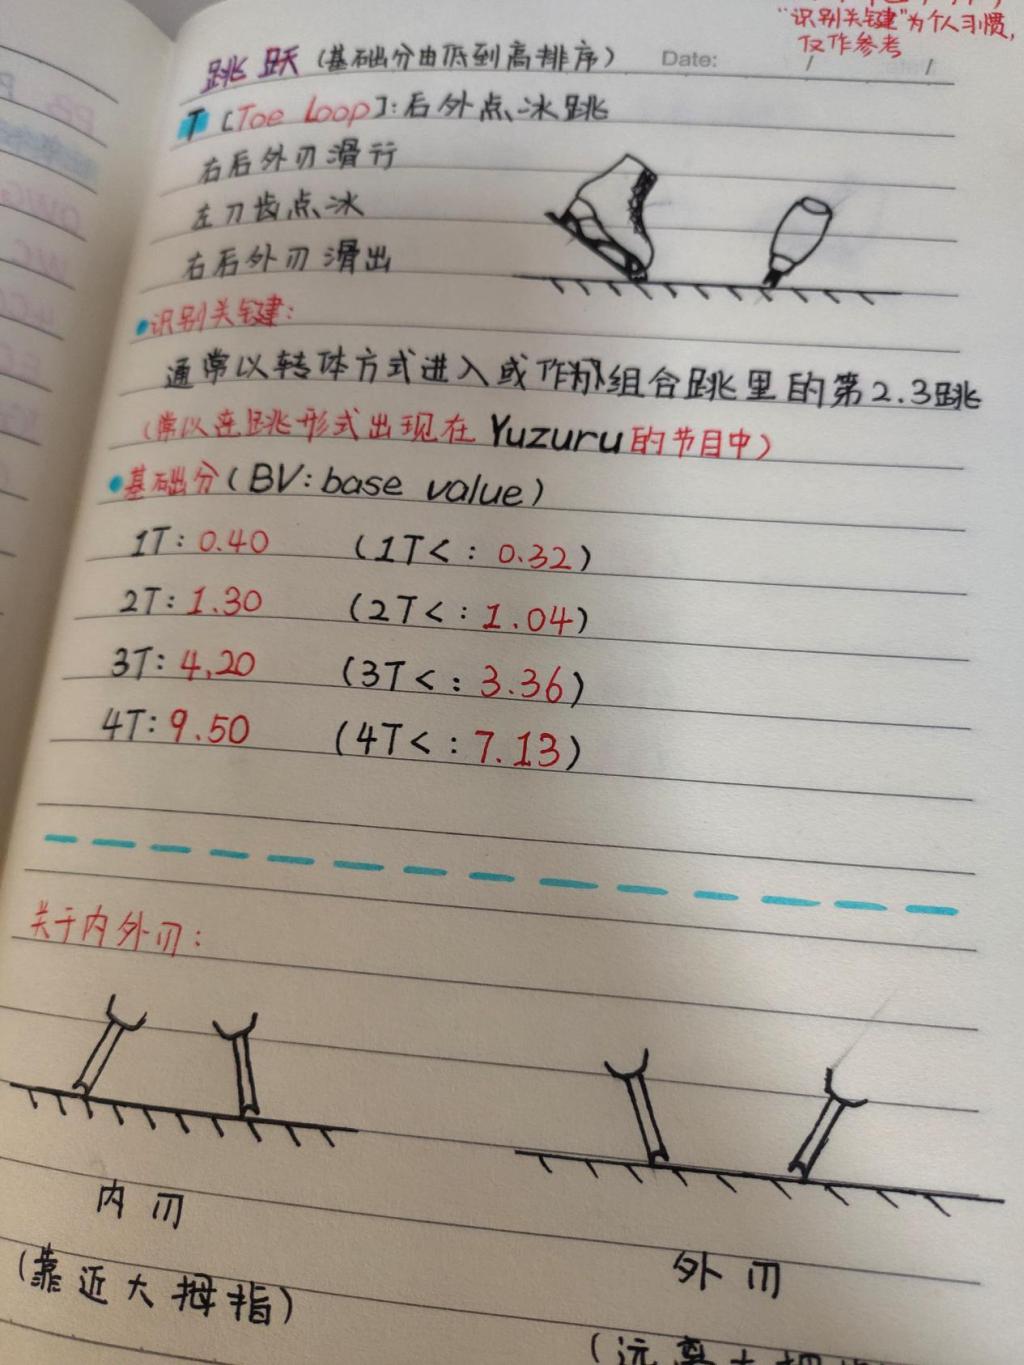 "识别关键"为个人习惯,
仅作参考
跳跃(基础分由低到高排序) Date: / /
T [Toe Loop]:后外点冰跳
右后外刃滑行
左刀齿点冰
右后外刃滑出
•识别关键:
通常以转体方式进入或作组合跳里的第2.3跳
(常以连跳形式出现在Yuzuru的节目中)
•基础分(BV:base value)
1T:0.40 (1T<:0.32)
2T:1.30 (2T<:1.04)
3T:4.20 (3T<:3.36)
4T:9.50 (4T<:7.13)
关于内外刃:
内刃
(靠近大拇指)
外刃
(远离大拇指